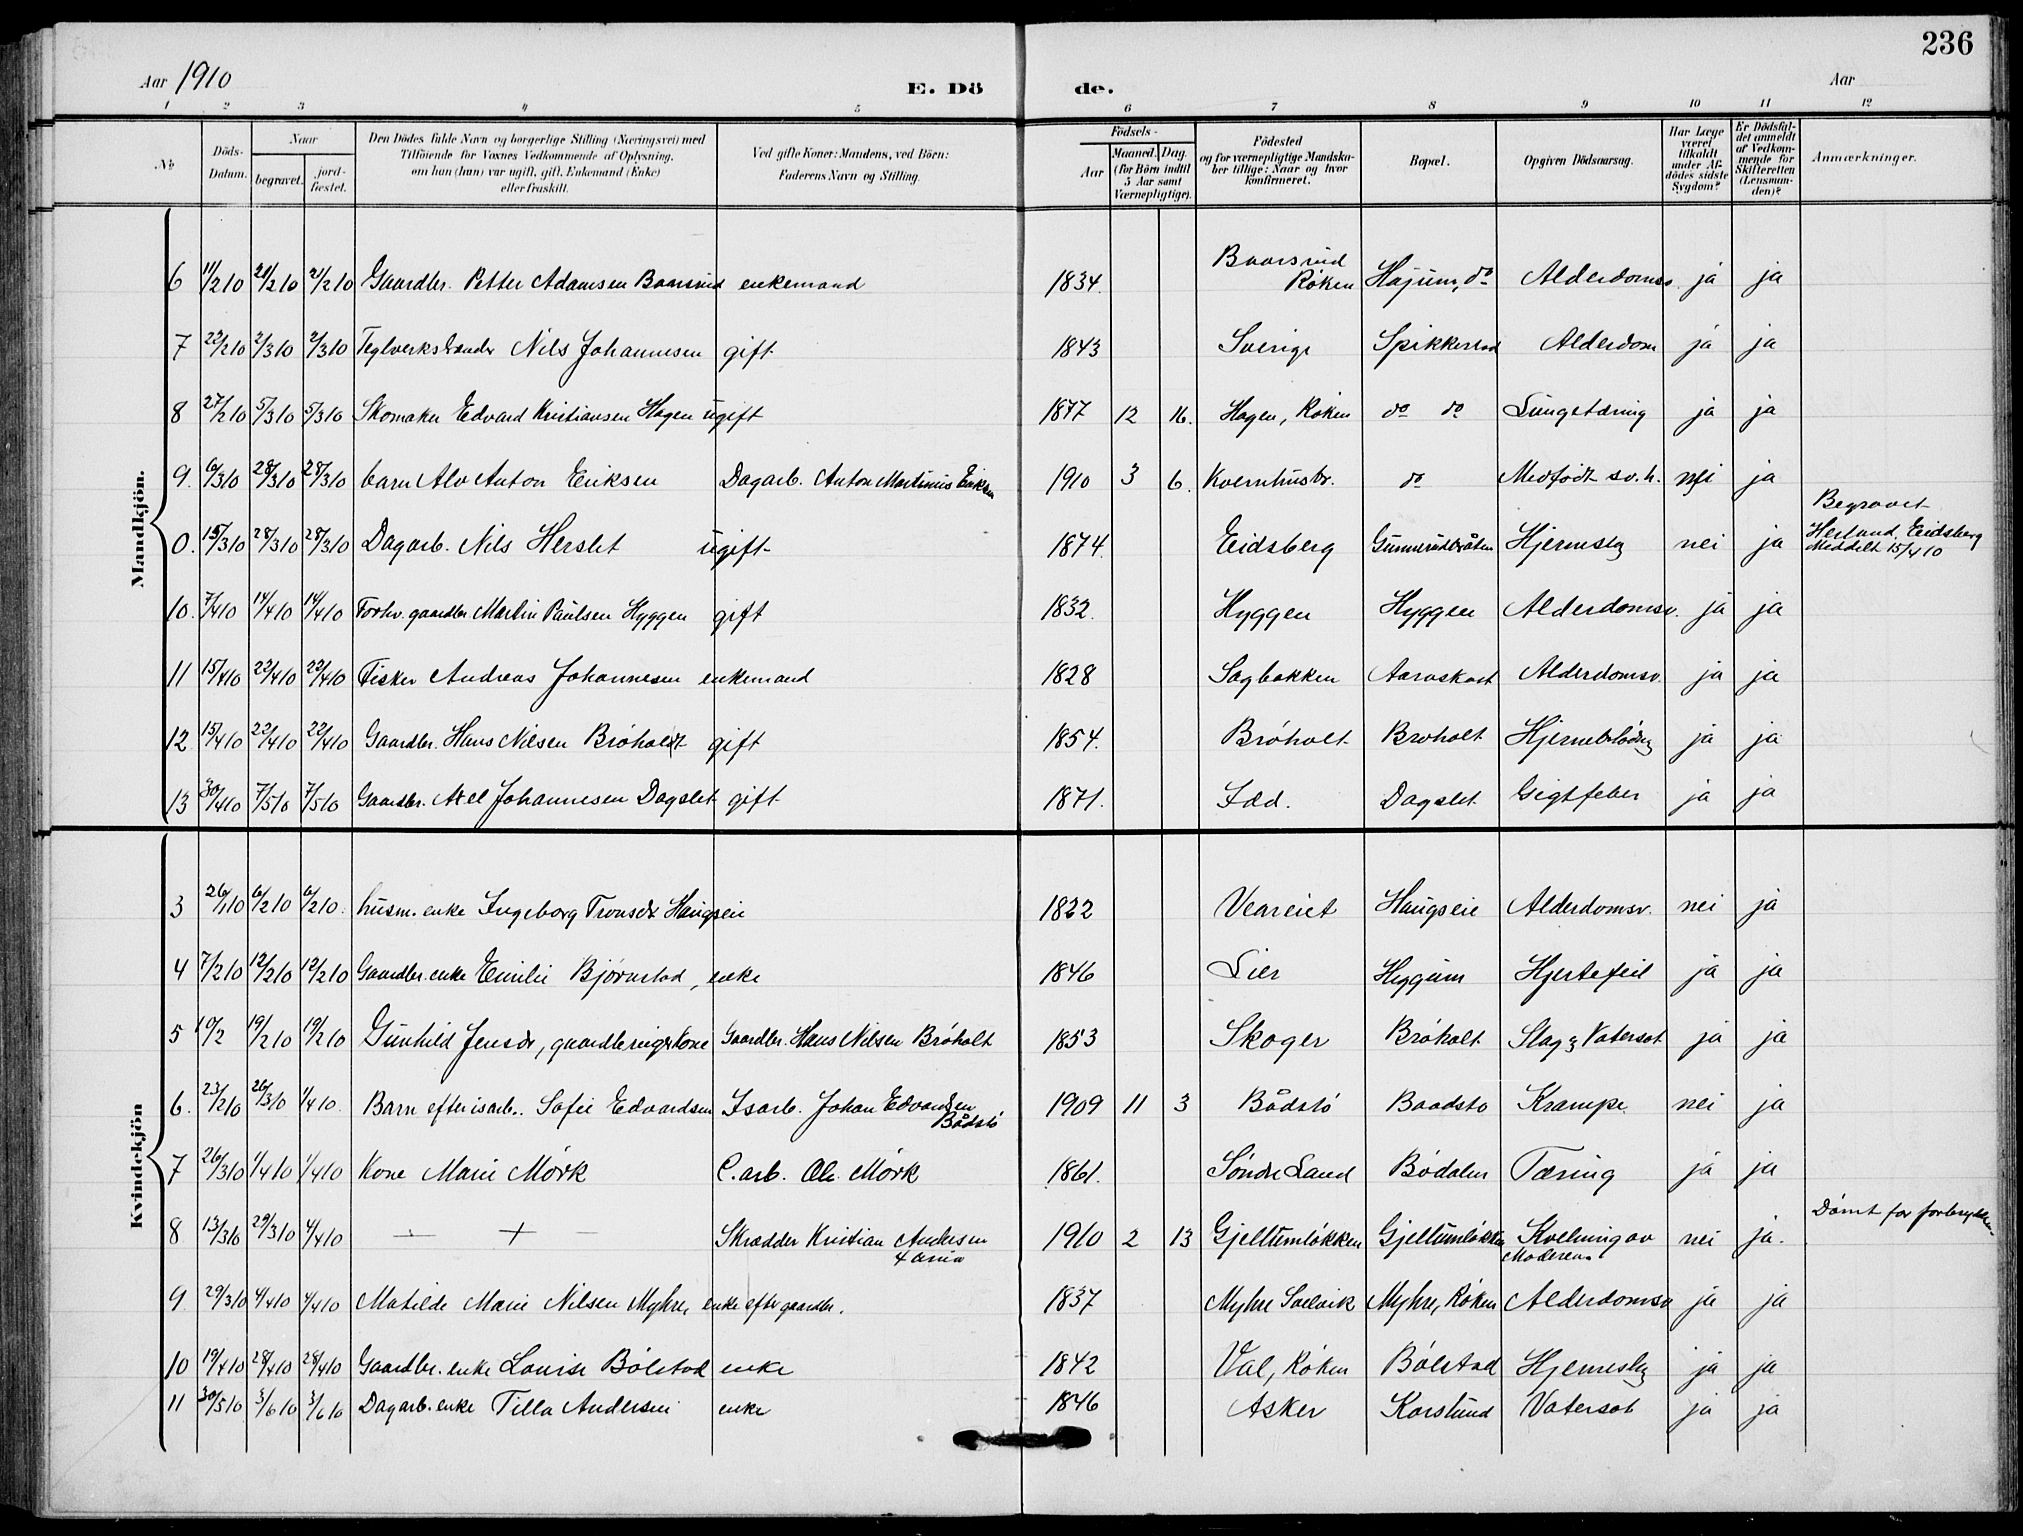 236
Aar 1910 E. Dö de. Aar
1 2 3 4 5 6 7 8 9 10 11 12
No
Döds-Datum.
Naar
begravet.
jord-fæstet.
Den Dödes fulde Navn og borgerlige Stilling (Næringsvei) med
Tilföiende for Voxnes Vedkommende af Oplysning,
om han (hun) var ugift, gift, Enkemand (Enke)
eller fraskilt.
Ved gifte Koner: Mandens, ved Börn:
Faderens Navn og Stilling.
Födsels-
Aar
Maaned. Dag.
(for Börn indtil
5 Aar samt
Værnepligtige).
Födested
og for værnepligtige Mandska-
ber tillige: Naar og hvor
konfirmeret.
Bopæl.
Opgiven Dödsaarsag.
Har Læge
været
tilkaldt
under Af-
dödes sidste
Sygdom?
Er Dödsfal-
det anmeldt
af Vedkom-
mende for
Skifteretten
(Lensman-
den)?
Anmærkninger.
Mandkjön.
6 11/2 10 21/2 10 21/2 10 Gaardbr. Petter Adamsen Baarsrud enkemand 1834. Baarsrud Røken Højum, do Alderdomsv. ja ja
7 22/2 10 2/3 10 2/3 10 Nils Johannesen gift 1843 Sverige Spikkestad Alderdom ja ja
8 27/2 10 5/3 10 5/3 10 Skomaker Edvard Kristiansen Hagen ugift 1877 12 16. Hagen, Røken do do Lungetæring ja ja
9. 6/3 10 28/3 10 28/3 10 barn Alv Anton Eriksen Dagarb. Anton Martinius Eriksen 1910 3 6. Kvernhusbr. do Medfødt sv.h. nei ja
0. 15/3 10 28/3 10 28/3 10 Dagarb. Nils Herslet ugift 1874. Eidsberg Gunnerudbråten Hjernesl. nei ja Begravet Herland, Eidsberg Meddelt 15/4 10
10. 7/4 10 14/4 10 14/4 10 Forhv. gaardbr Martin Paulsen Hyggen gift 1832. Hyggen Hyggen Alderdomsv. ja ja
11 15/4 10 22/4 10 22/4 10 Fisker Andreas Johannesen enkemand 1828 Sagbakken Aaroskort Alderdomsv. ja ja
12 15/4 10 22/4 10 22/4 10 Gaardbr. Hans Nilsen Bröholt gift 1854. Bröholt Broholt Hjerneblødn ja ja
13 30/4 10 7/5 10 7/5 10 Gaardbr. Axel Johannesen Dagslet gift 1871. Idd. Dagslet Gigtfeber ja ja
Kvindekjön
3 26/1 10 6/2 10 6/2 10. husm. enke Ingeborg Tronsdr Haugseie 1822 Veareiet Haugseie Alderdomsv. nei ja
4 7/2 10 12/2 10 12/2 10 Gaardbr. enke Emilie Bjørnstad, enke 1846 Lier Heggum Hjertefeil ja ja
5 10/2 19/2 10 19/2 10 Gunhild Jensdr, gaardbrugerkone Gaardbr. Hans Nilsen Bröholt 1853 Skoger Bröholt Slag & Vatersot ja ja
6. 23/2 10 26/3 10 1/4 10. Barn efter isarb. Sofie Edvardsen Isarb. Johan Edvardsen Bådstö 1909 11 3 Bådstö Baadsto Krampe. nei ja
7 26/3 10 1/4 10 1/4 10 Kone Marie Mörk C.arb. Ole Mörk 1861. Söndre Land Bödalen Tæring ja ja
8 13/3 10 29/3 10 4/4 10 — + — Skrædder Kristian Andersen 1910 2 13 Gjellumløkken Gjellumløkken Kvelning av Moderen. nei ja. Dømt for forbrydelsen.
9. 29/3 10 4/4 10 4/4 10 Matilde Marie Nilsen Myhre, enke efter gaardbr. 1837 Myhre Svelvik Myhre, Røken Alderdomsv ja ja
10 19/4 10 28/4 10 28/4 10 Gaardbr. enke Lovise Bölstad enke 1842 Val, Røken Bölstad Hjernesl. ja ja
11 30/5 10 3/6 10 3/6 10 Dagarb. enke Tilla Andersen enke 1846 Asker Korslund Vatersot ja ja